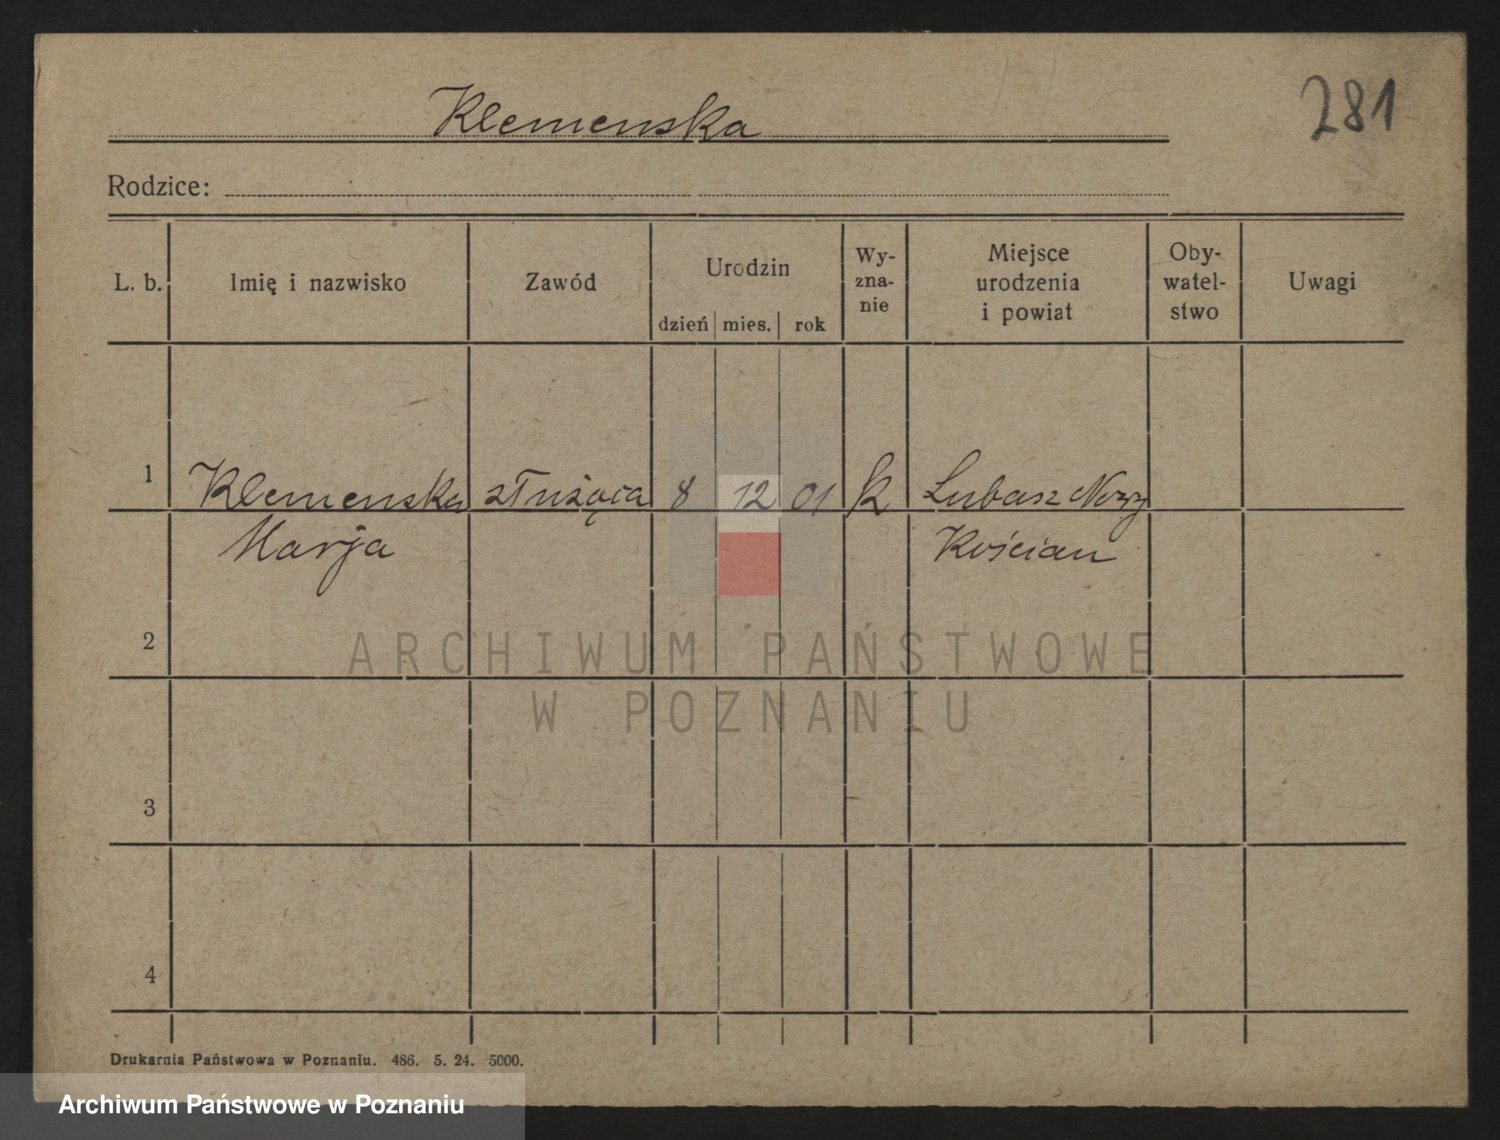 281
Klemenska
Rodzice:
L. b.
Imię i nazwisko
Zawód
Urodzin
dzień
mies.
rok
Wy-
zna-
nie
Miejsce
urodzenia
i powiat
Oby-
watel-
stwo
Uwagi
1
Klemenska
Marja
służąca
8
12
01
k
Lubosz Nowy
Kościan
2
3
4
ARCHIWUM PAŃSTWOWE
W POZNANIU
Drukarnia Państwowa w Poznaniu. 486. 5. 24. 5000.
Archiwum Państwowe w Poznaniu